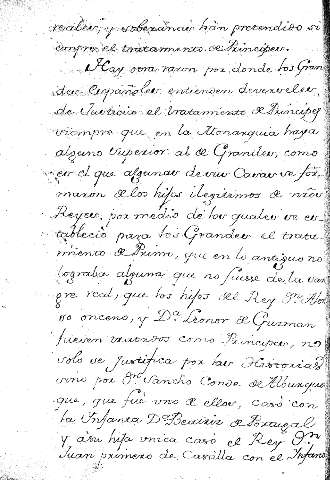 realeu, y soberanía han pretendido si
empre el tratamento de Principes.
Hay otra razon por donde los Gran
des Españoles entienden deverseles
de Justicia el tratamiento de Principes
siempre que en la Monarquia haya
alguno superior al de Grandes, como
es el que algunas de sus Casas se for
maron de los hijos ilegitimos de nros
Reyes, por medio de los quales se es
tableció para los Grandes el trata
miento de Primo, que en lo antiguo no
lograba alguno que no fuesse de la san
gre real, que los hijos del Rey Dn. Alon
so onceno, y Da. Leonor de Guzman
fuesen tratados como Principes, no
solo se justifica por las Historias
sino por Dn. Sancho Conde de Alburquer
que, que fué uno de ellos, casó con
la Infanta Da. Beatriz de Portugal
y a su hija unica casó el Rey Dn.
Juan primero de Castilla con el Infante